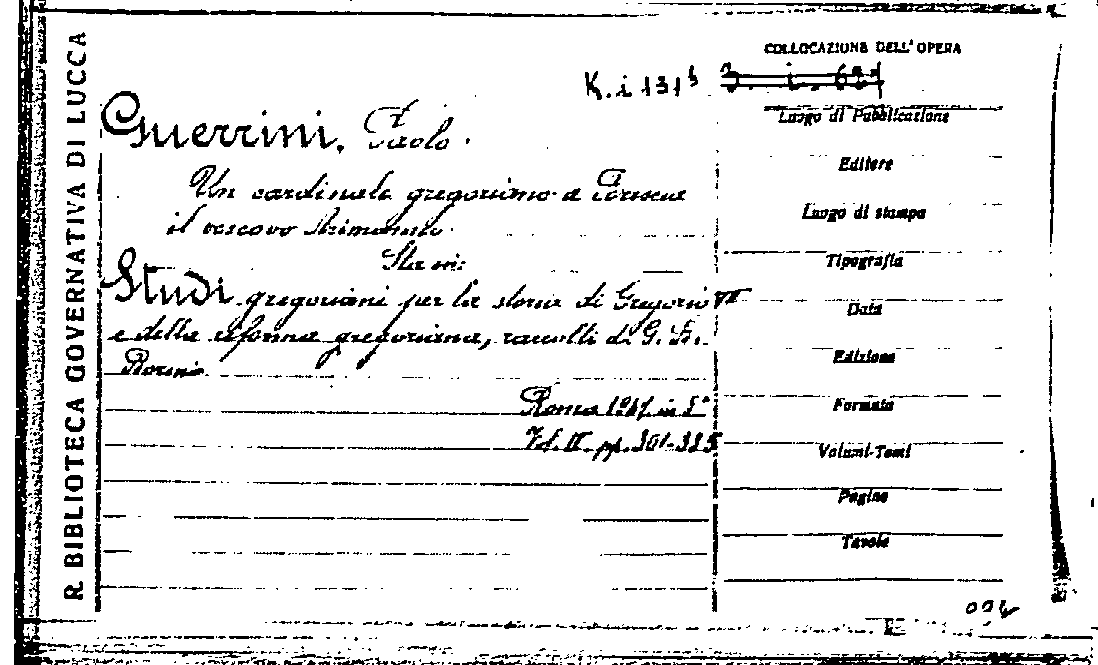 R. BIBLIOTECA GOVERNATIVA DI LUCCA
COLLOCAZIONE DELL'OPERA
K. i 131
Guerrini, Paolo.
Un cardinale gregoriano a Brescia
il vescovo Arimanno.
Sta in:
Studi gregoriani per la storia di Gregorio VII
e della riforma gregoriana, raccolti da G. B.
Borino
Roma 1947 in 8°
Vol. II. pp. 361-385
Luogo di Pubblicazione
Editore
Luogo di stampa
Tipografia
Data
Edizione
Formato
Volumi-Tomi
Pagine
Tavole